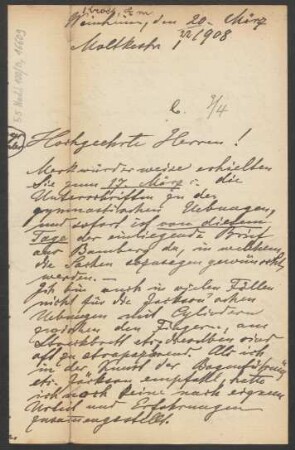 Weinheim, den 20. März
Moltkestr. 1908
Hochgeehrte Herren!
Merkwürdiger weise erhielten
Sie zum 17. März die
Unterschriften zu den
gymnastischen Uebungen,
und sofort ich von diesem
Tage der einliegende Brief
aus Bamberg da, in welchem
die Sachen gewünscht
werden. —
Ich bin auch in vielen Fällen
nicht für die Jackson'schen
Uebungen mit Cylindern
zwischen den Fingern, am
Stockbrett etc. dieselben sind
oft zu strapazierend. Als ich
in der Kunst der Bogenführung
etc. Jackson empfahl, hatte
ich noch keine nach eignem
Urteil und Erfahrungen
zusammengestellt.